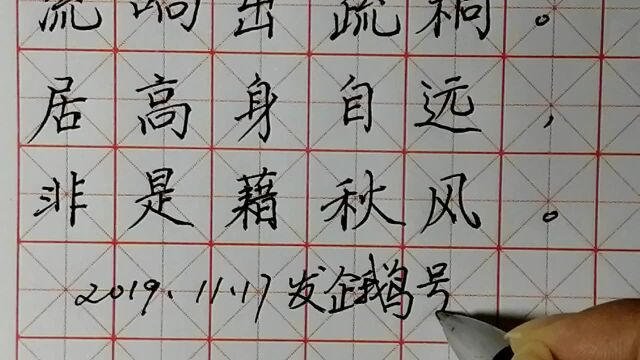 流响出疏桐。
居高身自远，
非是藉秋风。
2019.11.17发企鹅号